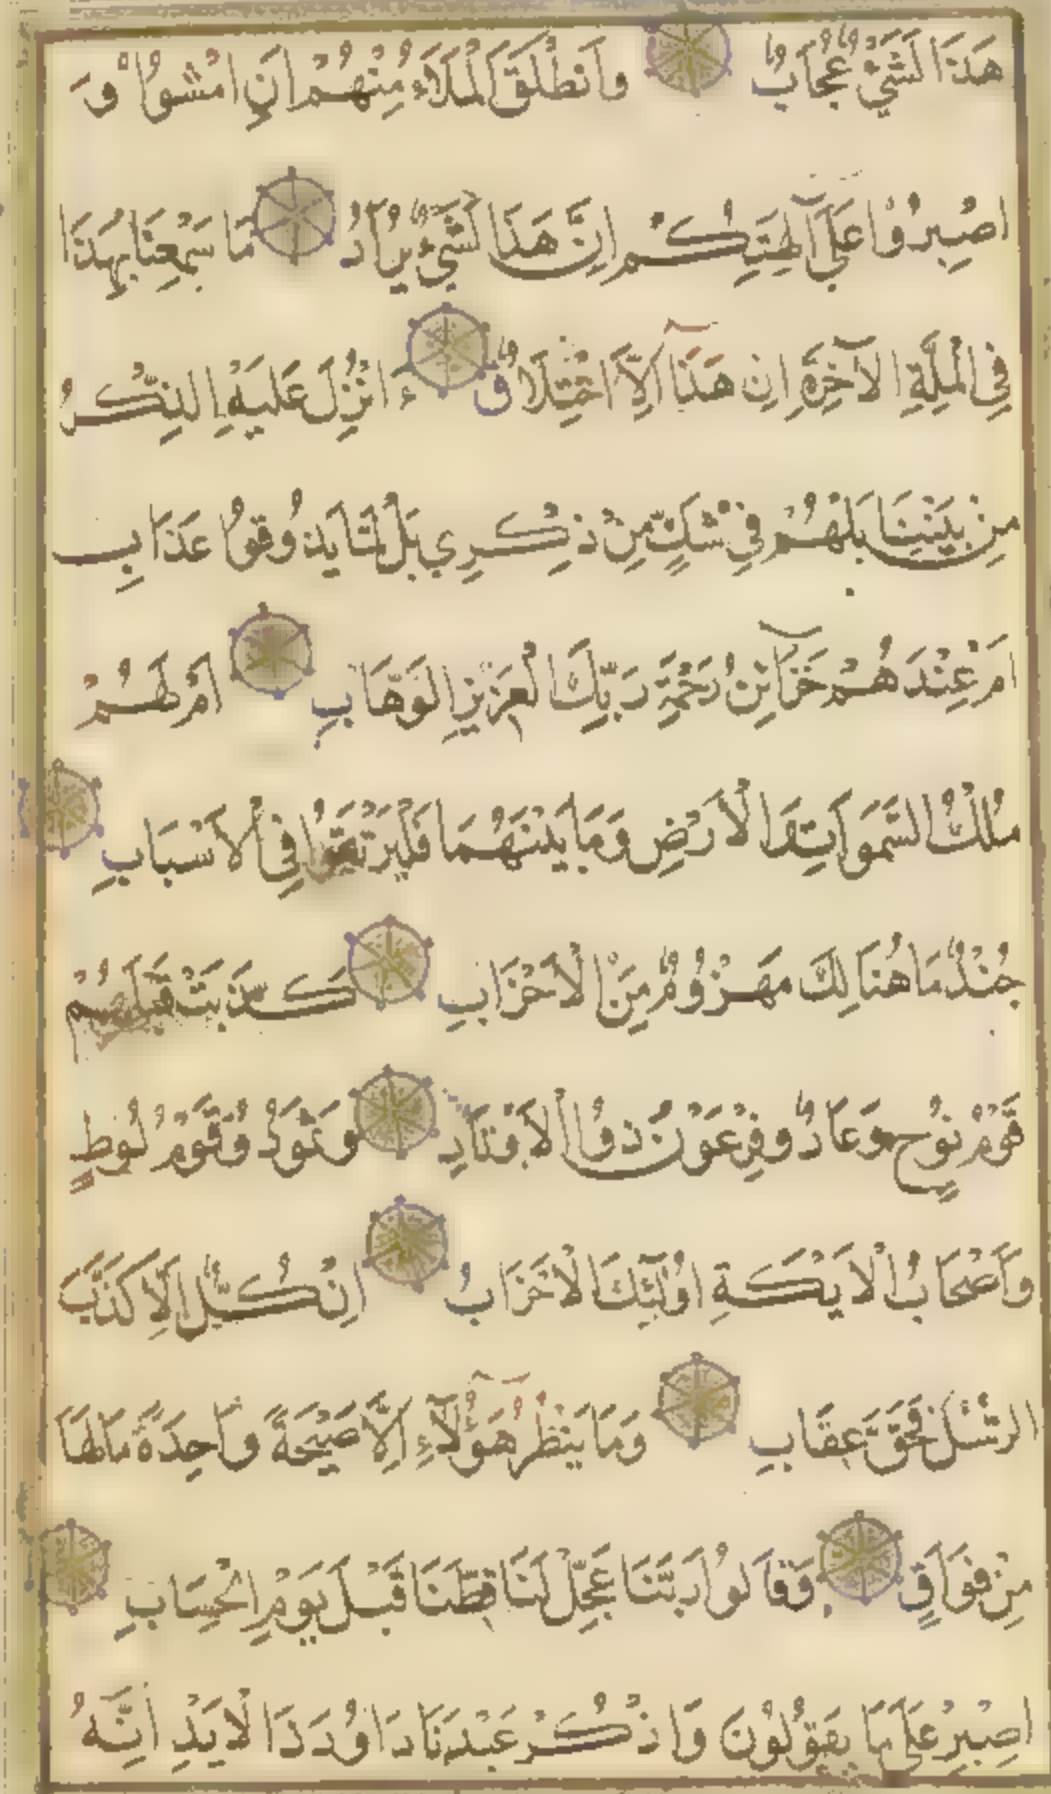 هَذَا لَشَيْءٌ عُجَابٌ وَانْطَلَقَ الْمَلَاءُ مِنْهُمْ اَنِ امْشُوا وَ
اصْبِرُوا عَلَى آلِهَتِكُمْ اِنَّ هَذَا لَشَيْءٌ يُرَادُ مَا سَمِعْنَا بِهَذَا
فِي الْمِلَّةِ الْآخِرَةِ اِنْ هَذَا اِلَّا اخْتِلَاقٌ ءَاُنْزِلَ عَلَيْهِ الذِّكْرُ
مِنْ بَيْنِنَا بَلْ هُمْ فِي شَكٍّ مِنْ ذِكْرِي بَلْ لَمَّا يَذُوقُوا عَذَابِ
اَمْ عِنْدَهُمْ خَزَآئِنُ رَحْمَةِ رَبِّكَ الْعَزِيزِ الْوَهَّابِ اَمْ لَهُمْ
مُلْكُ السَّمَوَاتِ وَالْاَرْضِ وَمَا بَيْنَهُمَا فَلْيَرْتَقُوا فِي الْاَسْبَابِ
جُنْدٌ مَا هُنَالِكَ مَهْزُومٌ مِنَ الْاَحْزَابِ كَذَّبَتْ قَبْلَهُمْ
قَوْمُ نُوحٍ وَعَادٌ وَفِرْعَوْنُ ذُوا الْاَوْتَادِ وَثَمُودُ وَقَوْمُ لُوطٍ
وَاَصْحَابُ الْاَيْكَةِ اُولَٓئِكَ الْاَحْزَابُ اِنْ كُلٌّ اِلَّا كَذَّبَ
الرُّسُلَ فَحَقَّ عِقَابِ وَمَا يَنْظُرُ هَؤُلَآءِ اِلَّا صَيْحَةً وَاحِدَةً مَا لَهَا
مِنْ فَوَاقٍ وَقَالُوا رَبَّنَا عَجِّلْ لَنَا قِطَّنَا قَبْلَ يَوْمِ الْحِسَابِ
اصْبِرْ عَلَى مَا يَقُولُونَ وَاذْكُرْ عَبْدَنَا دَاوُدَ ذَا الْاَيْدِ اِنَّهُ